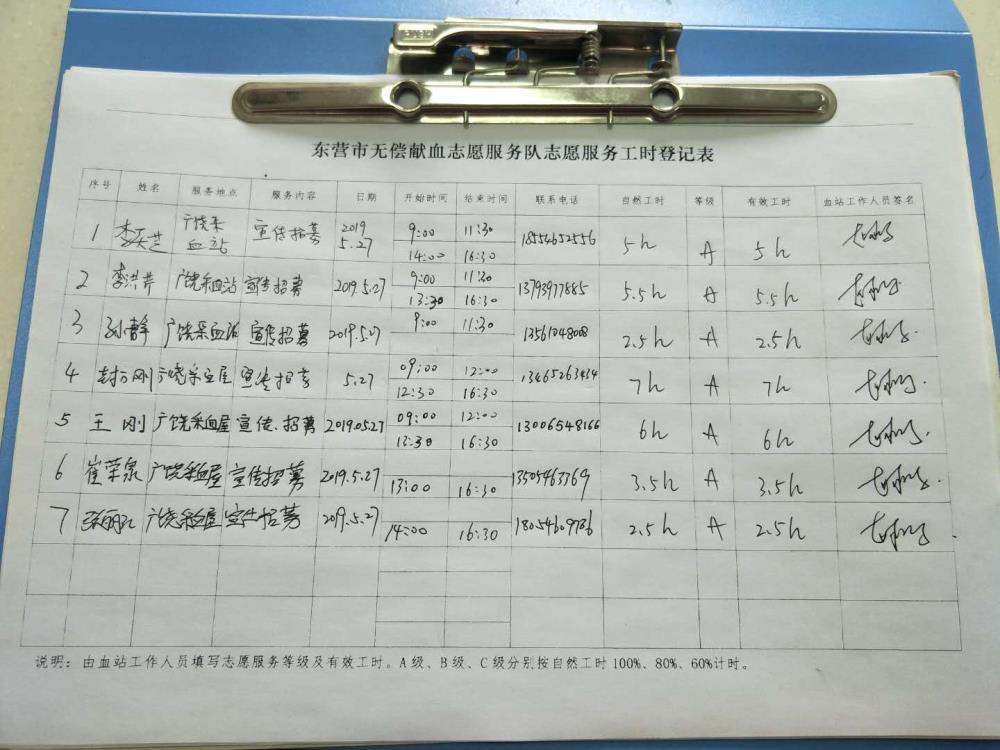 东营市无偿献血志愿服务队志愿服务工时登记表
序号 姓名 服务地点 服务内容 日期 开始时间 结束时间 联系电话 自然工时 等级 有效工时 血站工作人员签名
1 广饶采血站 宣传招募 2019 5.27 9:00 11:30 14:00 16:30 18554652556 5h A 5h
2 李洪芹 广饶采血站 宣传招募 2019.5.27 9:00 11:30 13:30 16:30 13793977885 5.5h A 5.5h
3 孙静 广饶采血 宣传招募 2019.5.27 9:00 11:30 13561048008 2.5h A 2.5h
4 封万刚 广饶采血屋 宣传招募 5.27 09:00 12:00 12:30 16:30 13465263434 7h A 7h
5 王刚 广饶采血屋 宣传.招募 2019.05.27 09:00 12:00 13:30 16:30 13006548166 6h A 6h
6 崔荣泉 广饶采血屋 宣传招募 2019.5.27 13:00 16:30 13505463769 3.5h A 3.5h
7 广饶采血屋 宣传招募 2019.5.27 14:00 16:30 2.5h A 2.5h
说明：由血站工作人员填写志愿服务等级及有效工时。A级、B级、C级分别按自然工时100%、80%、60%计时。